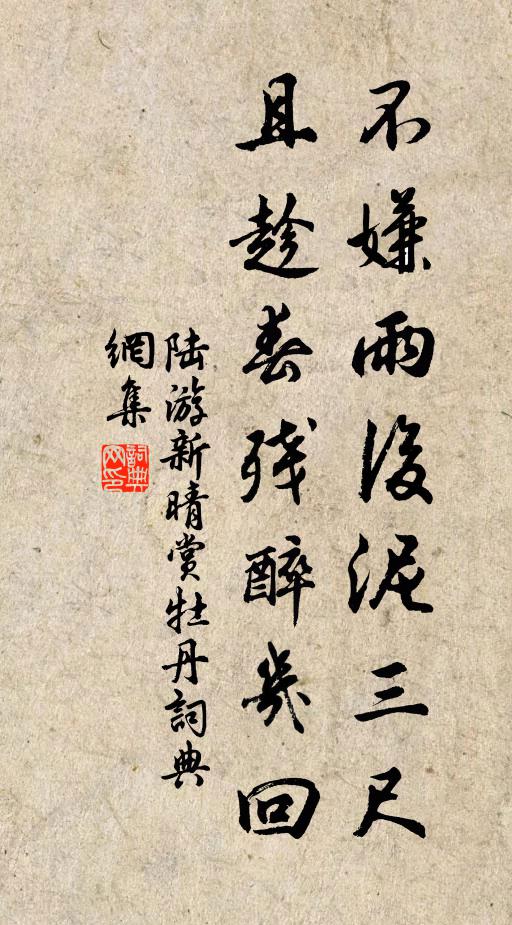 不嫌雨後泥三尺
且趁春殘醉幾回
陸游新晴賞牡丹詞典
網集
詞典
网印